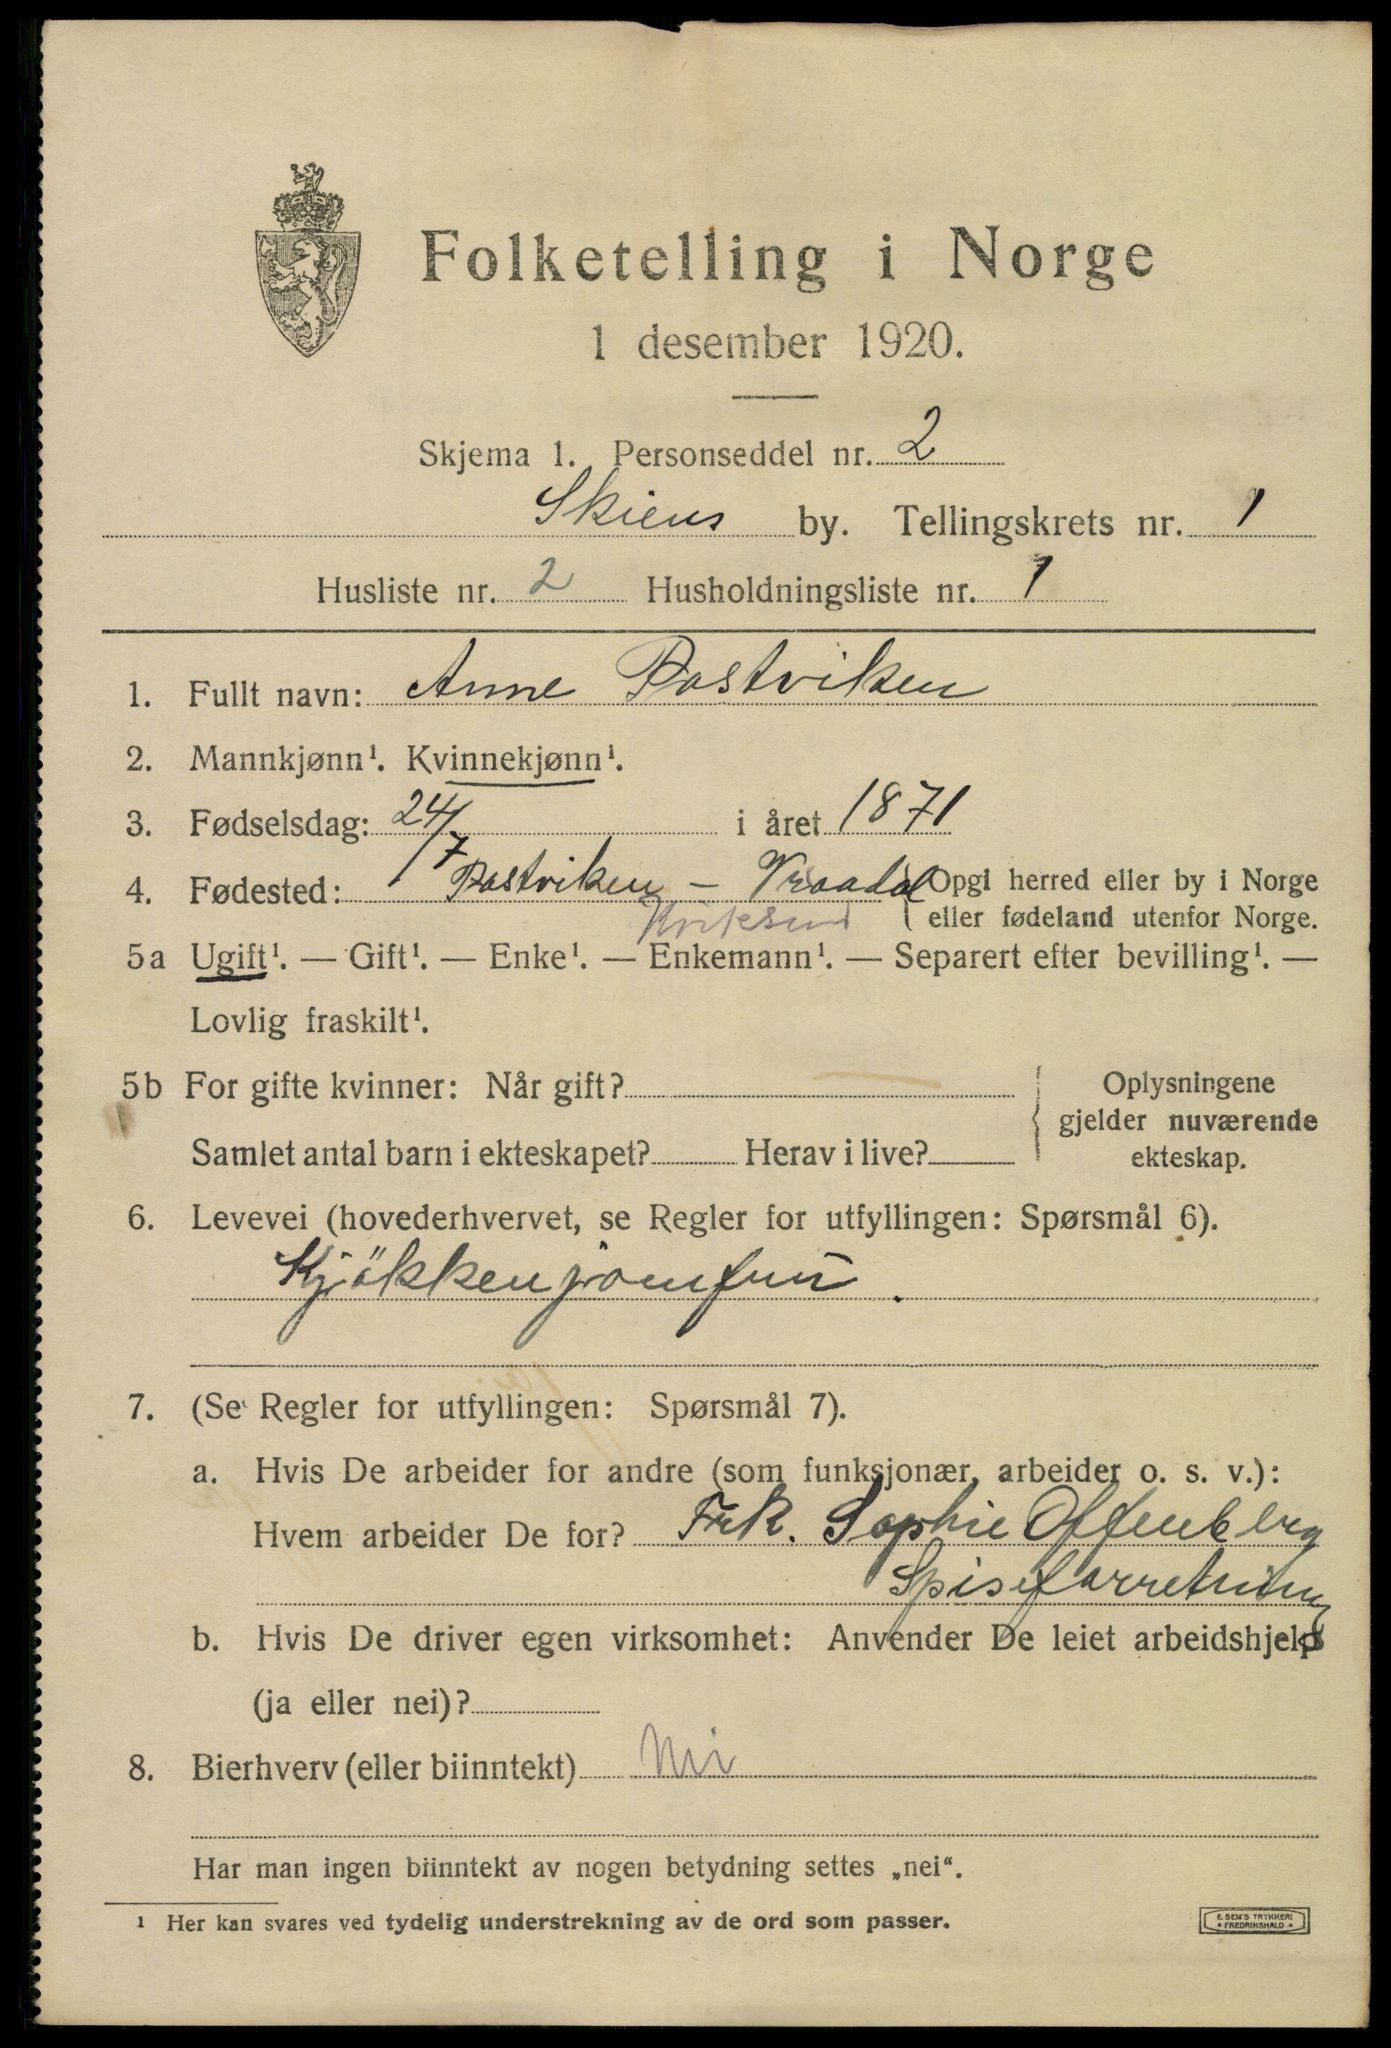 Folketelling i Norge
1 desember 1920.
Skjema 1. Personseddel nr. 2
Skiens by. Tellingskrets nr. 1
Husliste nr. 2 Husholdningsliste nr. 1
1. Fullt navn: Anne Rostviken
2. Mannkjønn¹. Kvinnekjønn¹.
3. Fødselsdag: 24/7 i året 1871
4. Fødested: Rostviken – Vraadal { Opgi herred eller by i Norge
eller fødeland utenfor Norge.
5a Ugift¹. — Gift¹. — Enke¹. — Enkemann¹. — Separert efter bevilling¹. —
Lovlig fraskilt¹.
5b For gifte kvinner: Når gift? —
Samlet antal barn i ekteskapet? Herav i live?
{ Oplysningene
gjelder nuværende
ekteskap.
6. Levevei (hovederhvervet, se Regler for utfyllingen: Spørsmål 6).
Kjökkenjomfru.
7. (Se Regler for utfyllingen: Spørsmål 7).
a. Hvis De arbeider for andre (som funksjonær, arbeider o. s. v.):
Hvem arbeider De for? Frk. Sophie Offenberg
Spiseforretning
b. Hvis De driver egen virksomhet: Anvender De leiet arbeidshjelp
(ja eller nei)?
8. Bierhverv (eller biinntekt) Nei
Har man ingen biinntekt av nogen betydning settes „nei“.
¹ Her kan svares ved tydelig understrekning av de ord som passer.
E. SEM'S TRYKKERI
FREDRIKSHALD